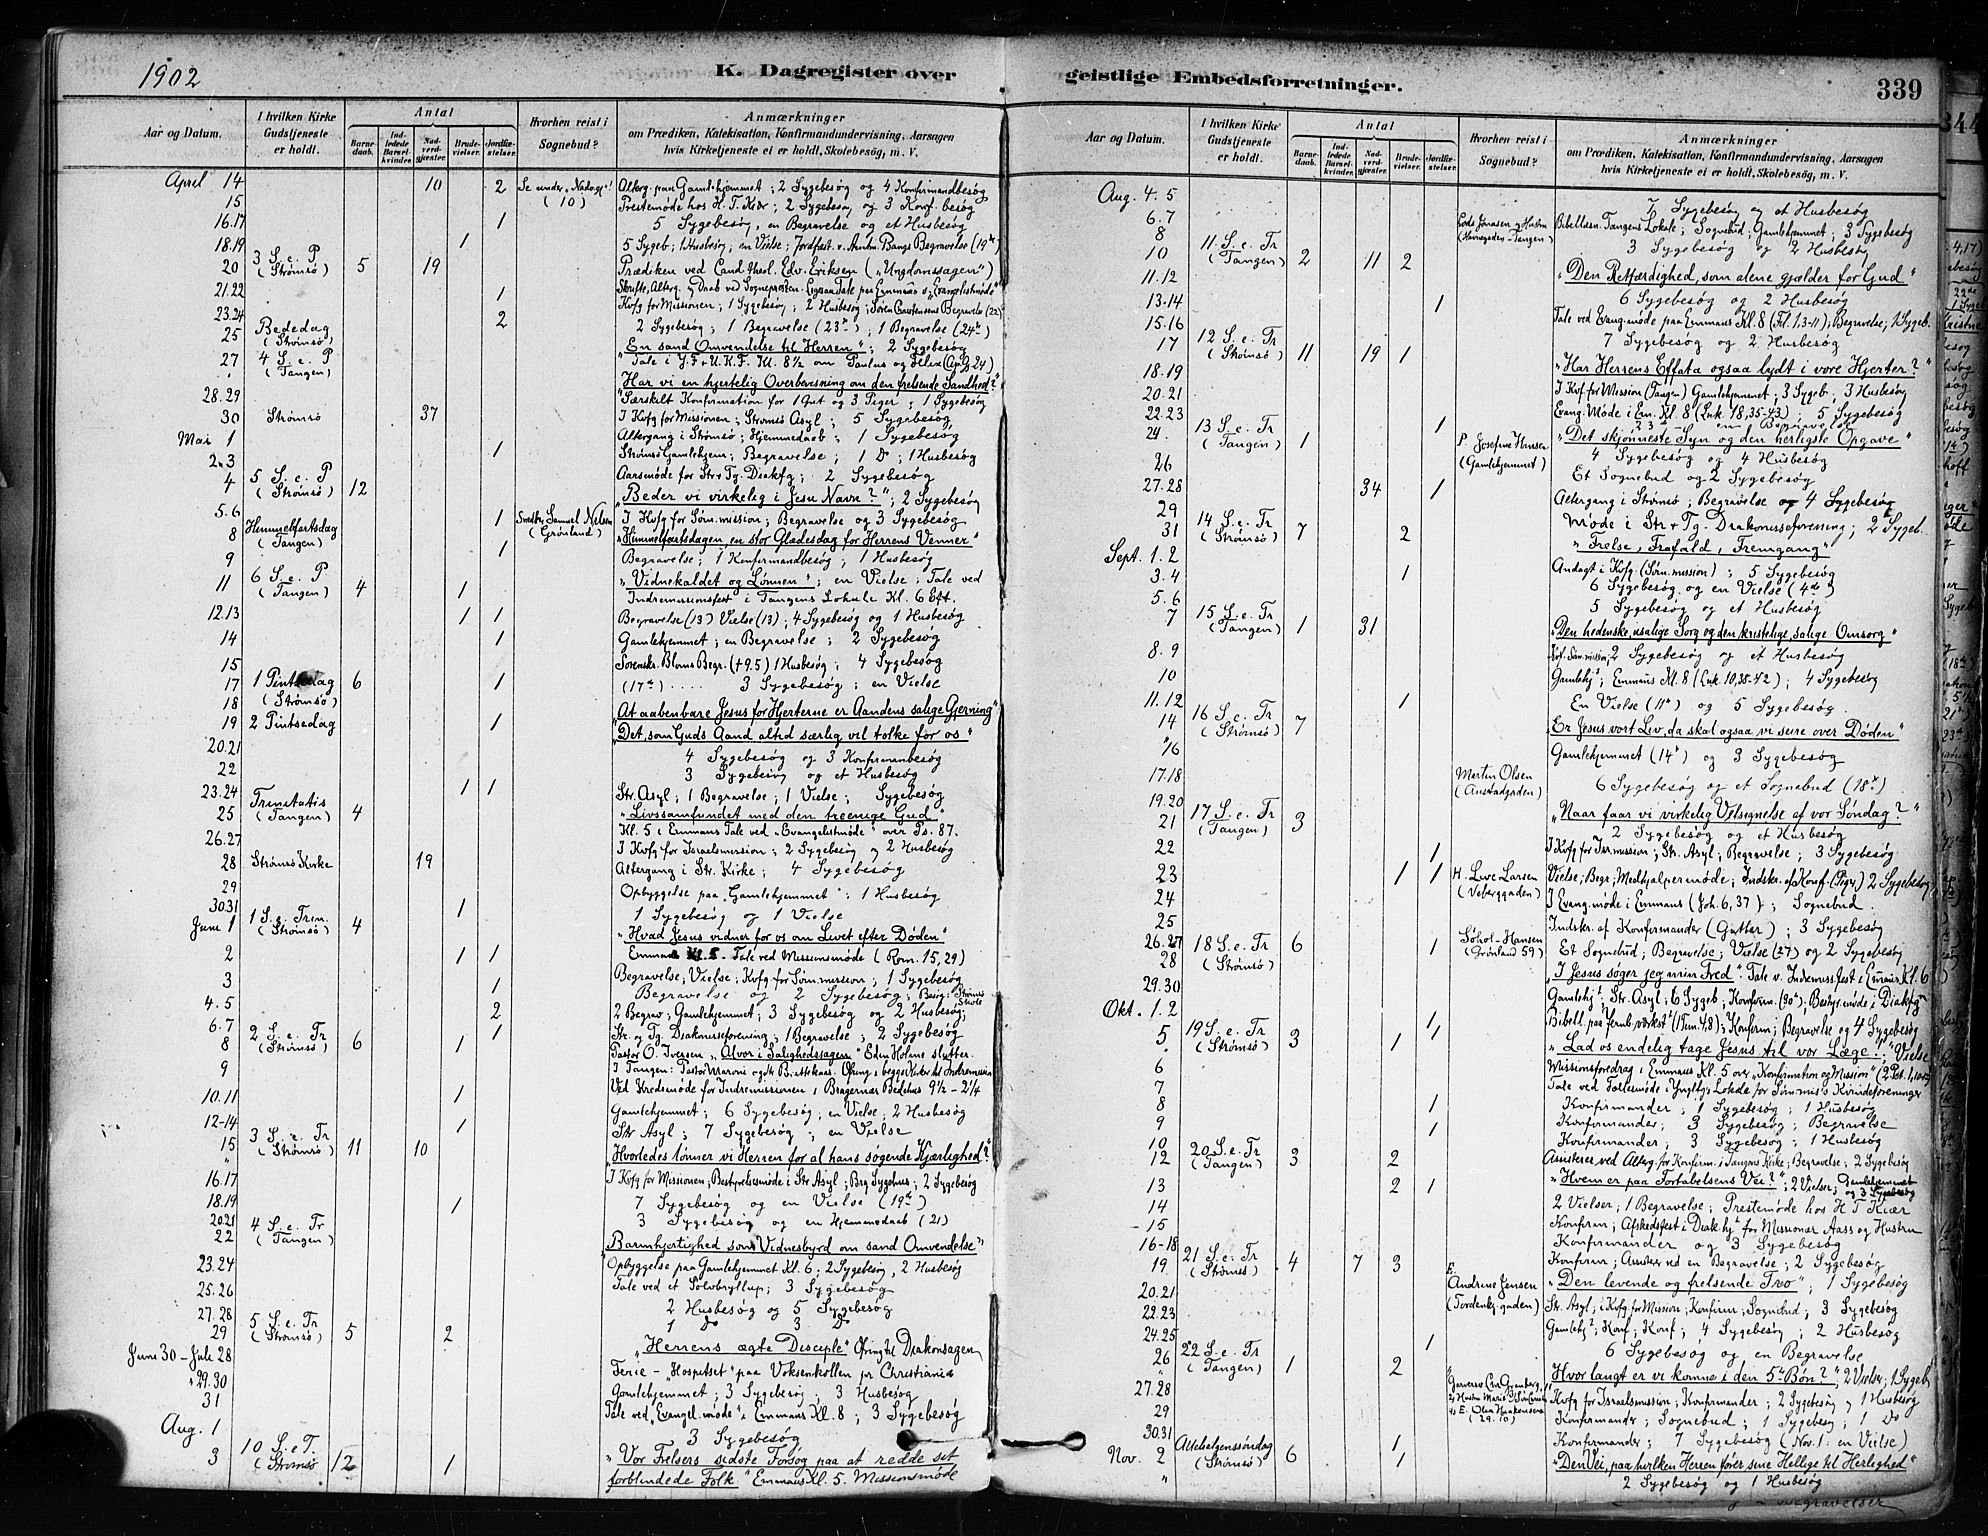 1902
K. Dagregister over
geistlige Embedsforretninger.
339
Aar og Datum.
I hvilken Kirke Gudstjeneste er holdt.
Antal
Barnedaab.
Indledede Barselkvinder.
Nadverdgjester.
Brudevielser.
Jordfæstelser.
Hvorhen reist i Sognebud?
Anmærkninger
om Prædiken, Katekisation, Konfirmandundervisning, Aarsagen
hvis Kirketjeneste ei er holdt, Skolebesøg, m. V.
April 14 10 2 Se under "Nadvgj"! Alterg. paa Gamlehjemmet; 2 Sygebesøg og 4 Konfirmandbesøg
15 (10) Prestemøde hos H. T. Kiær; 2 Sygebesøg og 3 Konf. besøg
16.17 1 5 Sygebesøg, en Begravelse og et Husbesøg
18.19 1 5 Sygeb; 1 Husbesøg; en Vielse; Jordfæst. v. Amtm. Bangs Begravelse (19de)
20 3 S. e. P (Strømsø) 5 19 Prædiken ved Cand. theol. Edv. Eriksen ("Ungdomssagen")
Skrifte, Alterg. og Daab ved Sognepresten. Tale paa Emmaus v. "Evangelistmøde"
21.22 1 Kvfg for Missionen; 1 Sygebesøg; 2 Husbesøg; Søren Begravelse (22)
23.24 2 2 Sygebesøg; 1 Begravelse (23de); 1 Begravelse (24de)
25 Bededag (Strømsø) "En sand Omvendelse til Herren"; 2 Sygebesøg
27 4 S. e. P (Tangen) Tale i Y.F. & U.K.F. Kl. 8½ om Paulus og Felix (Ap. G. 24)
"Har vi en hjertelig Overbevisning om den frelsende Sandhed?"
28.29 Særskilt Konfirmation for 1 Gut og 3 Piger; 1 Sygebesøg
30 Strømsø 37 I Kvfg for Missionen; Strømsø Asyl; 5 Sygebesøg
Mai 1 Altergang i Strømsø; Hjemmedaab; 1 Sygebesøg
2.3 1 Strømsø Gamlehjem; Begravelse; 1 Do; 1 Husbesøg
Aarsmøde for Str & Tg. Diakfg; 2 Sygebesøg
4 5 S. e. P (Strømsø) 12 "Beder vi virkelig i Jesu Navn?"; 2 Sygebesøg
5.6 1 Snedker Samuel Nilsen (Grønland) I Kvfg for Søm. mission; Begravelse og 3 Sygebesøg
8 Himmelfartsdag (Tangen) "Himmelfartsdagen, en stor Gladesdag for Herrens Venner"
9 1 Begravelse; 1 Konfirmandbesøg; 1 Husbesøg
11 6 S. e. P (Tangen) 4 1 "Vidnekaldet og Lønnen"; en Vielse; Tale ved
Indremissionsfest i Tangens Lokale Kl. 6 Eft.
12.13 1 1 Begravelse (13) Vielse (13); 4 Sygebesøg og 1 Husbesøg
14 1 Gamlehjemmet; en Begravelse; 2 Sygebesøg
15 Sorenskr. Bloms Begr. (+9.5) 1 Husbesøg; 4 Sygebesøg
17 1 Pintsedag (Strømsø) 6 1 (17de) .... 3 Sygebesøg; en Vielse
18 "At aabenbare Jesus for Hjerterne er Aandens salige Gjerning"
19 2 Pintsedag 1 "Det, som Guds Aand altid særlig vil tolke for os"
20.21 4 Sygebesøg og 3 Konfirmanbesøg
22 3 Sygebesøg og et Husbesøg
23.24 1 1 Str. Asyl; 1 Begravelse; 1 Vielse; Sygebesøg
25 Trinitatis (Tangen) 4 "Livssamfundet med den treenige Gud"
Kl. 5 i Emmaus Tale ved "Evangelistmøde" over Ps. 87.
26.27 I Kvfg for Israelsmission; 2 Sygebesøg og 2 Husbesøg
28 Strømsø Kirke 19 Altergang i Str. Kirke; 4 Sygebesøg
29 Opbyggelse paa "Gamlehjemmet"; 1 Husbesøg
30.31 1 1 Sygebesøg og 1 Vielse
Juni 1 1 S. e. Trin. (Strømsø) 4 "Hvad Jesus vidner for os om Livet efter Døden"
Emmaus Kl. 5. Tale ved Missionsmøde (Rom. 15, 29)
2 1 1 Begravelse, Vielse; Kvfg for Sømmission; 1 Sygebesøg
3 1 Begravelse og 2 Sygebesøg; Besøg: Strømsø Skole
4.5 2 2 Begrav; Gamlehjemmet; 3 Sygebesøg og 2 Husbesøg;
6.7 1 Str. og Tg. Diakonisseforening; 1 Begravelse; 2 Sygebesøg
8 2 S. e. Tr (Strømsø) 6 1 Pastor O. Iversen "Alvor i Salighedssagen" Edv. Holme slutter.
9 I Tangen: Pastor Maroni og Br. Brattekaas. Ofring i begge Kirker til Indremission
10.11 1 Ved Kredsmøde for Indremissionen i Bragernæs Bedehus 9½ – 2¼
Gamlehjemmet; 6 Sygebesøg; en Vielse; 2 Husbesøg
12-14 1 Str Asyl; 7 Sygebesøg; en Vielse
15 3 S. e. Tr (Strømsø) 11 10 "Hvorledes lønner vi Herren for al hans søgende Kjærlighed?"
16.17 I Kvfg for Missionen; Bestyrelsesmøde i Str Asyl; Brg Sygehus; 2 Sygebesøg
18.19 1 7 Sygebesøg og en Vielse (19de)
20.21 3 Sygebesøg og en Hjemmedaab (21)
22 4 S. e. Tr (Tangen) "Barmhjertighed som Vidnesbyrd om sand Omvendelse"
23.24 Opbyggelse paa Gamlehjemmet Kl. 6; 2 Sygebesøg, 2 Husbesøg
25.26 Tale ved et Sølvbryllup; 3 Sygebesøg
27.28 2 Husbesøg og 5 Sygebesøg
1 Do 3 Do
29 5 S. e. Tr (Strømsø) 5 2 "Herrens ægte Disciple" Ofring til Diakonsagen
Juni 30 – Juli 28 Ferie – "Hospitset" paa Voksenkollen pr Christiania
29.30 Gamlehjemmet; 3 Sygebesøg; 3 Husbesøg
31 Tale ved "Evangel. møde" i Emmaus Kl. 8; 3 Sygebesøg
Aug. 1 3 Sygebesøg
3 10 S. e. T. (Strømsø) 12 1 "Vor Frelsers sidste Forsøg paa at redde sit
forblindede Folk" Emmaus Kl. 5. Missionsmøde
Aar og Datum.
I hvilken Kirke Gudstjeneste er holdt.
Antal
Barnedaab.
Indledede Barselkvinder.
Nadverdgjester.
Brudevielser.
Jordfæstelser.
Hvorhen reist i Sognebud?
Anmærkninger
om Prædiken, Katekisation, Konfirmandundervisning, Aarsagen
hvis Kirketjeneste ei er holdt, Skolebesøg, m. V.
Aug. 4.5 7 Sygebesøg og et Husbesøg
6.7 Jonassen og Hustru (Tangen) Bibellæsn. Tangens Lokale; Sognebud; Gamlehjemmet; 3 Sygebesøg
8 3 Sygebesøg og 2 Husbesøg
10 11 S. e. Tr (Tangen) 2 11 2 "Den Retfærdighed, som alene gjælder for Gud"
11.12 6 Sygebesøg og 2 Husbesøg
13.14 1 Tale ved Evang. møde paa Emmaus Kl. 8 (Fil. 1,3-11); Begravelse; 1 Sygeb.
15.16 7 Sygebesøg og 2 Husbesøg
17 12 S. e. Tr (Strømsø) 11 19 1 "Har Herrens Effata ogsaa lydt i vore Hjerter?"
18.19 I Kvf for Mission (Tangen) Gamlehjemmet; 3 Sygeb, 3 Husbesøg
20.21 Evang. Møde i Em. Kl. 8 (Luk. 18,35-43); 5 Sygebesøg
22.23 1 23de en Begravelse
24. 13 S. e. Tr (Tangen) 1 P. Josefine Hansen (Gamlehjemmet) "Det skjønneste Syn og den herligste Opgave"
4 Sygebesøg og 4 Husbesøg
26 Et Sognebud og 2 Sygebesøg
27.28 34 1 Altergang i Strømsø; Begravelse og 4 Sygebesøg
29 Møde i Str & Tg. Diakonisseforening; 2 Sygeb.
31 14 S. e. Tr (Strømsø) 7 2 "Frelse, Frafald, Fremgang"
Sept. 1.2 Andagt i Kvfg. (Søm. mission); 5 Sygebesøg
3.4 1 6 Sygebesøg og en Vielse (4de)
5.6 5 Sygebesøg og et Husbesøg
7 15 S. e. Tr (Tangen) 1 31 "Den hedenske, usalige Sorg og den kristelige, salige Omsorg"
8.9 Kvf. Søm. mission; 2 Sygebesøg og et Husbesøg
10 Gamlehj; Emmaus Kl. 8 (Luk. 10,38-42); 4 Sygebesøg
11.12 1 En Vielse (11te) og 5 Sygebesøg.
14 16 S. e. Tr (Strømsø) 7 "Er Jesus vort Liv, da skal ogsaa vi seire over Døden"
16 Gamlehjemmet (14de) og 3 Sygebesøg
17.18 Martin Olsen (Austadgaden) 6 Sygebesøg og et Sognebud (18de)
19.20
21 17 S. e. Tr (Tangen) 3 "Naar faar vi virkelig Velsignelse af vor Søndag?"
2 Sygebesøg og et Husbesøg
22 1 I Kvfg for Isr. mission; Str. Asyl; Begravelse; 3 Sygebesøg
23 1 1 H. Live Larsen Vielse; Begr; Medhjælpermøde; Indskr. af Konf. (Piger) 2 Sygebesøg
24 I Evang. møde i Emmaus (Joh. 6, 37); Sognebud.
25 Indskr. af Konfirmander (Gutter); 3 Sygebesøg
26.27 1 Hansen (Grønland 59) Et Sognebud; Begravelse; Vielse (27) og 2 Sygebesøg
28 18 S. e. Tr (Strømsø) 6 "I Jesus søger jeg min Fred". Tale v. Indremis. fest i Emaus Kl. 6
29.30 Gamlehj; Str. Asyl; 6 Sygeb; Konfirm. (30te), Bestyr. møde i Diakfg
Okt. 1.2 1 Bibell. paa Jernb. værkst. (1 Tim. 4.8); Konfirm; Begravelse og 4 Sygebesøg
5 19 S. e. Tr (Strømsø) 3 1 "Lad os endelig tage Jesus til vor Læge!"; Vielse
6 Missionsforedrag i Emmaus Kl. 5 over "Konfirmation og Mission"
7 Tale ved Fællesmøde i Lokale for Sømmis. Kvindeforeninger
8 1 Konfirmander; 1 Sygebesøg; 1 Husbesøg
9 1 Konfirmander; 3 Sygebesøg; Begravelse
10 Konfirmander; 3 Sygebesøg; 1 Husbesøg
12 20 S. e. Tr (Tangen) 3 2 Assisterer ved Alterg. for Konfirm. i Tangens Kirke; Begravelse; 2 Sygebesøg
"Hvem er paa Fortabelsens Vei?"; 2 Vielser; Gamlehjemmet og 3 Sygebesøg
13 2 1 2 Vielser; 1 Begravelse; Prestemøde hos H T Kiær
14 Konfirm; Afskedsfest i Diakhj. for Missionar Aass og Hustru
15 Konfirmander og 3 Sygebesøg
16-18 Konfirm; Assister. ved en Begravelse; 2 Sygebesøg
19 21 S. e. Tr (Strømsø) 4 7 3 E. Andrine Jensen (Tordenskj. gaden) "Den levende og frelsende Tro"; 1 Sygebesøg
20.21 Str. Asyl; i Kvfg for Mission; Konfirm; Sognebud; 3 Sygebesøg
22.23 Gamlehj; Konf; Konf; 4 Sygebesøg; 2 Husbesøg
24.25 1 6 Sygebesøg og en Begravelse
26 22 S. e. Tr (Tangen) 1 2 "Hvor langt er vi komne i den 5te Bøn?"; 2 Vielser; 1 Sygeb.
27.28 Kvfg for Israelsmission; Konfirmander; 2 Sygebesøg og 1 Husbesøg
29 (29.10) Konfirmander; Sognebud; 1 Sygebesøg; 1 Do
30.31 1 Konfirmander; 7 Sygebesøg (Nov. 1: en Vielse)
Nov. 2 Allehelgenssøndag (Strømsø) 6 1 "Den Vei, paa hvilken Herren fører sine Hellige til Herlighed"
2 Sygebesøg og 1 Husbesøg
Begravelser